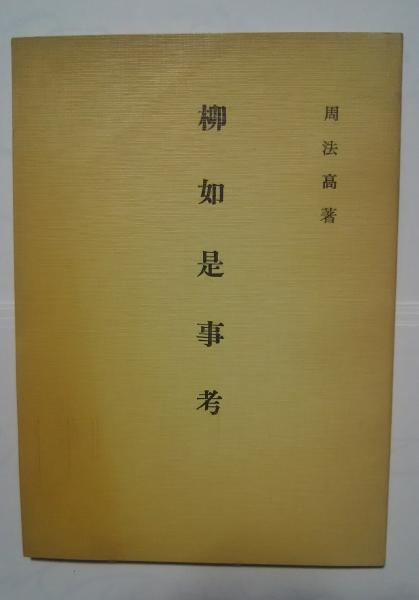 周法高著
柳如是事考